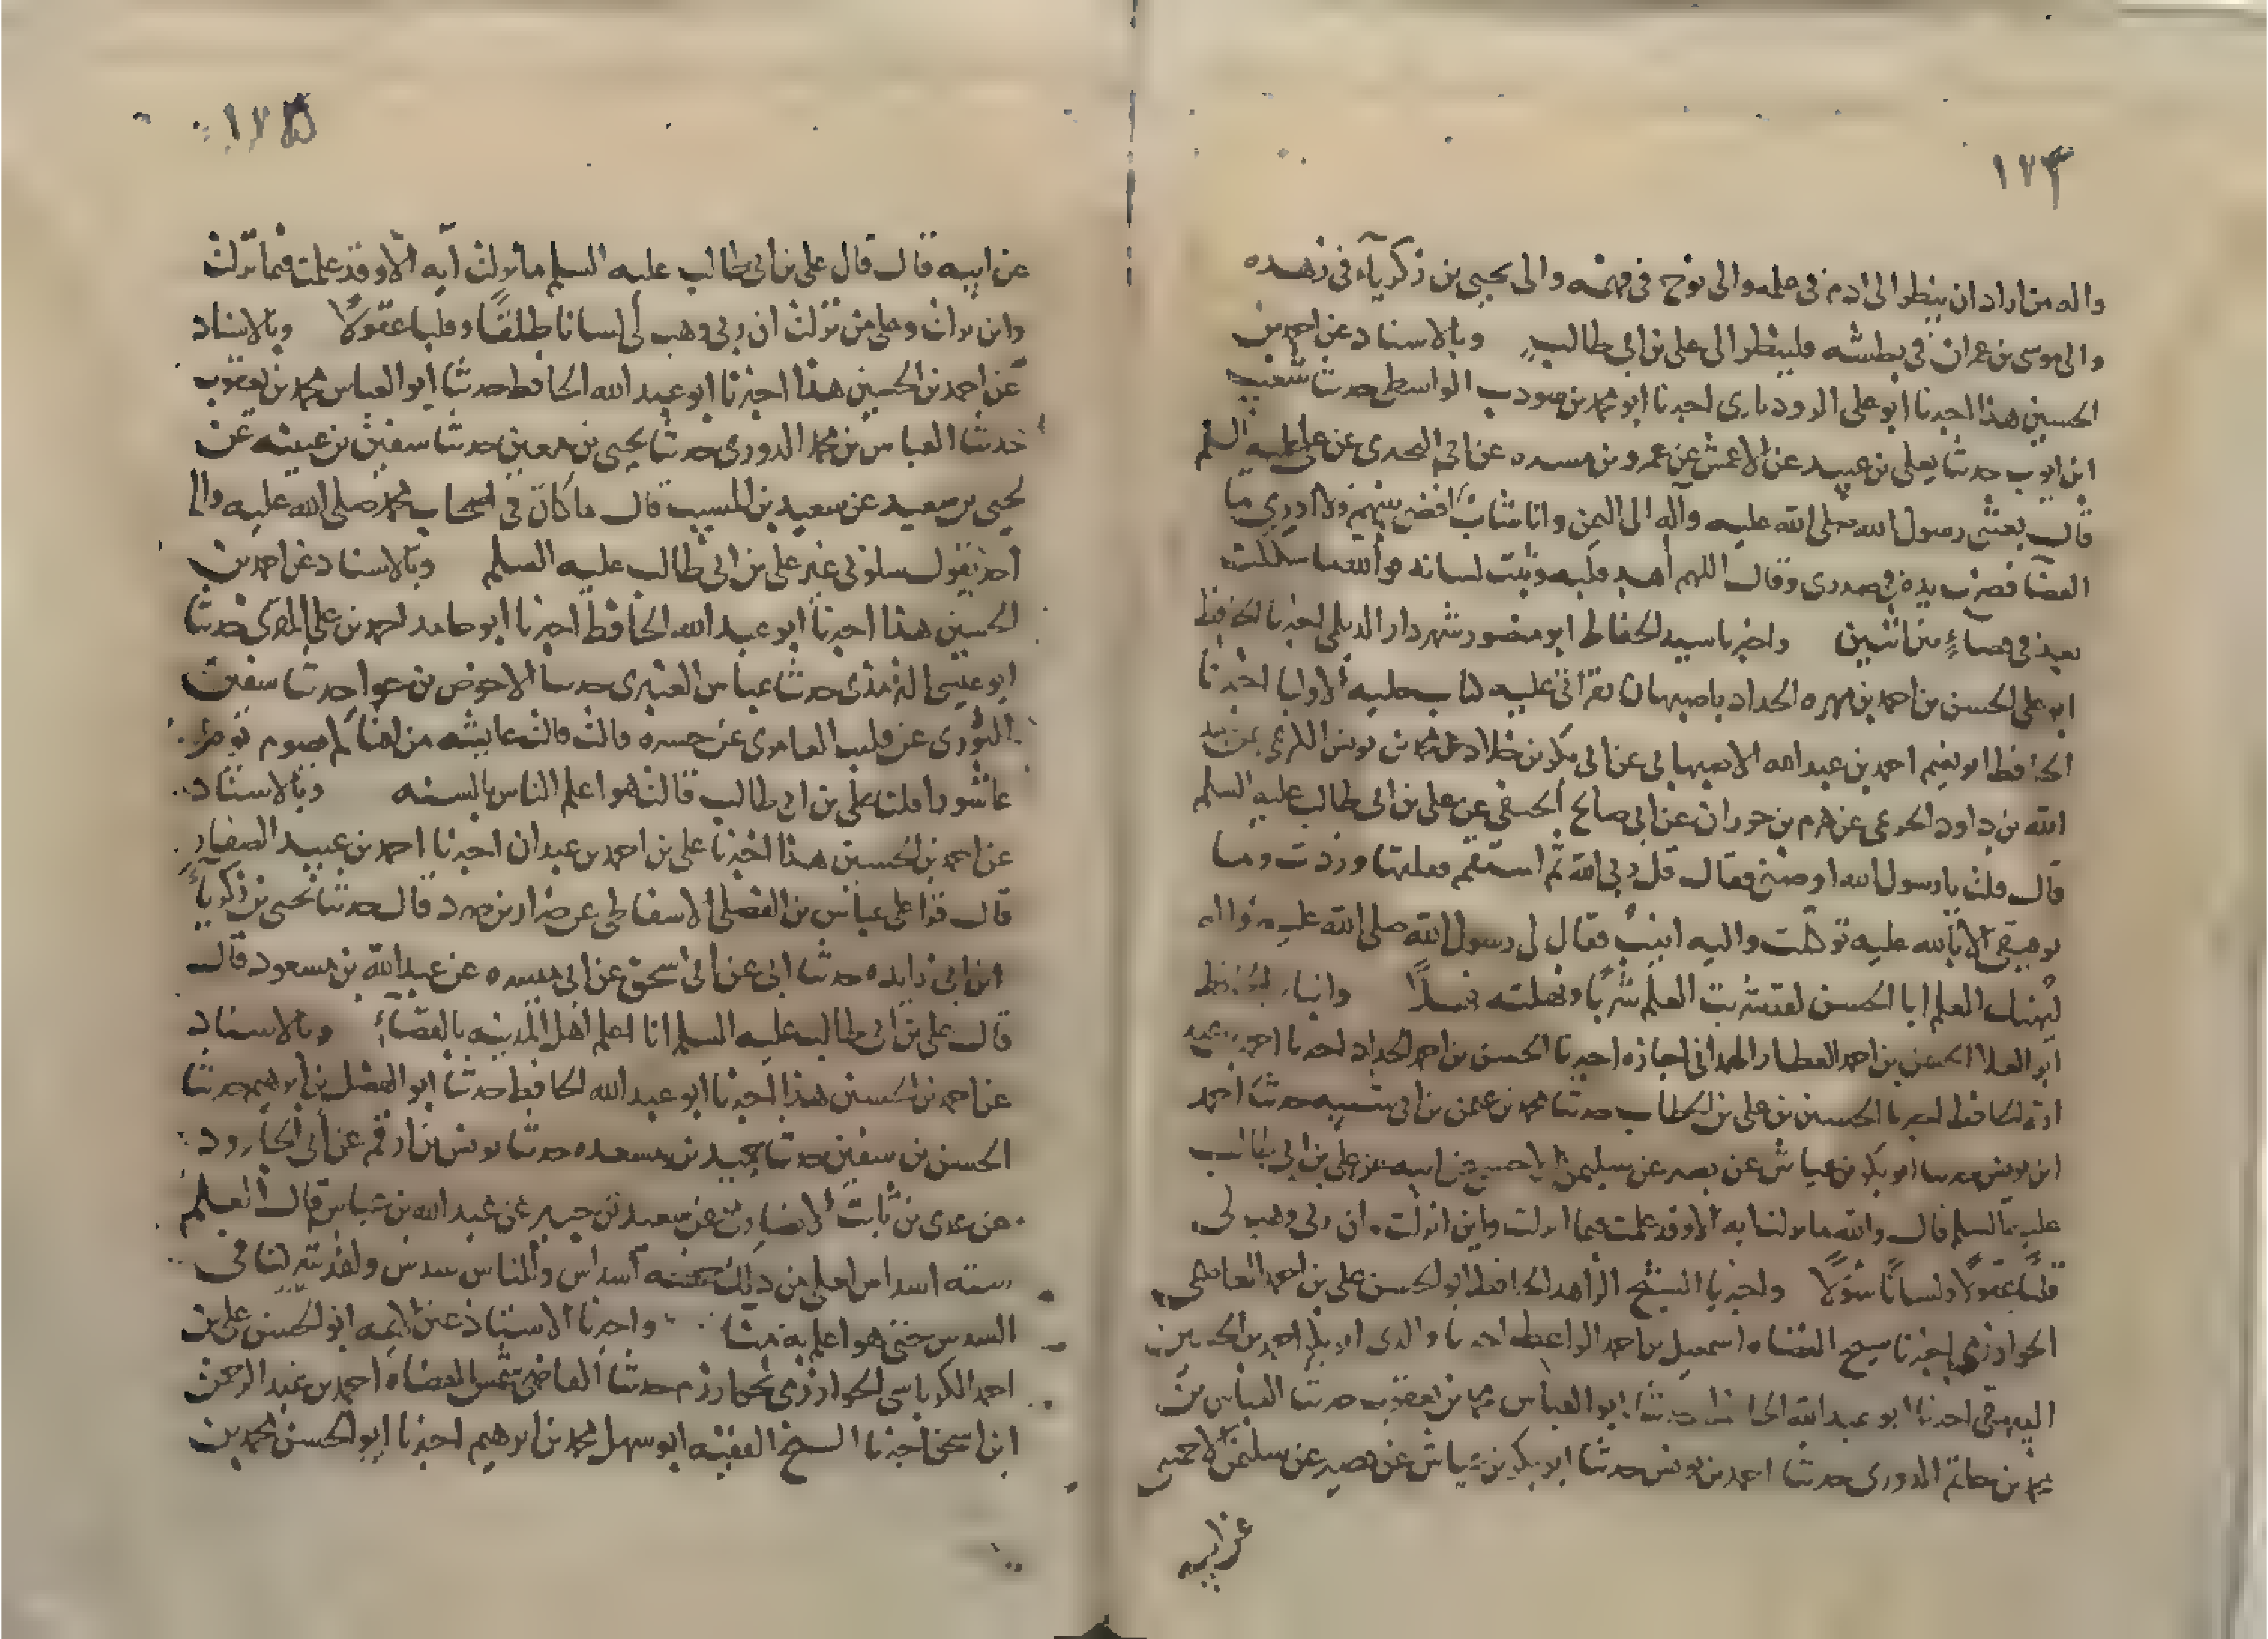 ١٢٤
واله من اراد ان ينظر الى ادم في علمه والى نوح في فهمه والى يحيى بن زكرياء في زهده
والى موسى بن عمران في بطشه فلينظر الى علي بن ابي طالب وبالاسناد عن احمد بن
الحسين هذا اخبرنا ابو علي الرودباري اخبرنا ابو محمد بن شوذب الواسطي حدثنا شعيب
ابن ايوب حدثنا يعلى بن عبيد عن الاعمش عن عمرو بن مره عن ابي البختري عن علي عليه السلم
قال بعثني رسول الله صلى الله عليه وآله الى اليمن وانا شاب اقضي بينهم ولا ادري ما
القضا فضرب يده في صدري وقال اللهم اهد قلبه وثبت لسانه فوالله ما شككت
بعد في قضاء بين اثنين واخبرنا سيد الحفاظ ابو منصور شهردار الديلمي اخبرنا الحافظ
ابو علي الحسن بن احمد بن مهره الحداد باصبهان بقراتي عليه كتاب حليه الاوليا اخبرنا
الحافظ ابو نعيم احمد بن عبد الله الاصبهاني عن ابي بكر بن خلاد عن محمد بن يونس الكديمي عن عبد
الله بن داود الخريبي عن هرم بن حوران عن ابي صالح الحنفي عن علي بن ابي طالب عليه السلم
قال قلت يا رسول الله اوصني فقال قل ربي الله ثم استقم فقلتها وزدت وما
توفيقي الا بالله عليه توكلت واليه انيب فقال لي رسول الله صلى الله عليه واله
ليهنك العلم ابا الحسن لقد شربت العلم شربا ونهلته نهلا وانباني الحافظ
ابو العلا الحسن بن احمد العطار الهمداني اجازه اخبرنا الحسن بن احمد الحداد اخبرنا احمد بن عبد
الله الحافظ اخبرنا الحسين بن علي بن الخطاب حدثنا محمد بن عثمن بن ابي شيبه حدثنا احمد
ابن يونس حدثنا ابو بكر بن عياش عن نصير عن سليمن الاحمسي عن ابيه عن علي بن ابي طالب
عليه السلم قال والله ما نزلت ايه الا وقد علمت فيما انزلت واين انزلت ان ربي وهب لي
قلبا عقولا ولسانا سؤلا واخبرنا الشيخ الزاهد الحافظ ابو الحسن علي بن احمد العاصمي
الخوارزمي اخبرنا شيخ القضاه اسمعيل بن احمد الواعظ اخبرنا والدي ابو بكر احمد بن الحسين
البيهقي اخبرنا ابو عبد الله الحافظ حدثنا ابو العباس محمد بن يعقوب حدثنا العباس بن
محمد بن حاتم الدوري حدثنا احمد بن يونس حدثنا ابو بكر بن عياش عن نصير عن سليمن الاحمسي
عن ابيه
١٢٥
عن ابيه قال قال علي بن ابي طالب عليه السلم ما نزلت آيه الا وقد علمت فيما نزلت
واين نزلت وعلى من نزلت ان ربي وهب لي لسانا طلقا وقلبا عقولا وبالاسناد
عن احمد بن الحسين هذا اخبرنا ابو عبد الله الحافظ حدثنا ابو العباس محمد بن يعقوب
حدثنا العباس بن محمد الدوري حدثنا يحيى بن معين حدثنا سفين بن عيينه عن
يحيى بن سعيد عن سعيد بن المسيب قال ما كان في اصحاب محمد صلى الله عليه واله
احد يقول سلوني غير علي بن ابي طالب عليه السلم وبالاسناد عن احمد بن
الحسين هذا اخبرنا ابو عبد الله الحافظ اخبرنا ابو حامد احمد بن علي المقري حدثنا
ابو عيسى الترمذي حدثنا عباس العنبري حدثنا الاحوص بن جواب حدثنا سفين
الثوري عن قليب العامري عن جسره قالت قالت عايشه من افتاكم بصوم يوم
عاشورا قلنا علي بن ابي طالب قالت هو اعلم الناس بالسنه وبالاسناد
عن احمد بن الحسين هذا اخبرنا علي بن احمد بن عبدان اخبرنا احمد بن عبيد الصفار
قال قرا علي عباس بن الفضل الاسفاطي عن ضرار بن صرد قال حدثنا يحيى بن زكرياء
ابن ابي زايده حدثنا ابي عن ابي اسحق عن ابي ميسره عن عبد الله بن مسعود قال
قال علي بن ابي طالب عليه السلم انا اعلم اهل المدينه بالقضاء وبالاسناد
عن احمد بن الحسين هذا اخبرنا ابو عبد الله الحافظ حدثنا ابو الفضل بن ابرهيم حدثنا
الحسن بن سفين حدثنا حميد بن مسعده حدثنا يونس بن ارقم عن ابي الجارود
عن عدي بن ثابت الانصاري عن سعيد بن جبير عن عبد الله بن عباس قال العلم
سته اسداس لعلي من ذلك خمسه اسداس وللناس سدس ولقد شركنا في
السدس حتى هو اعلم به منا واخبرنا الاستاذ عين الايمه ابو الحسن علي بن
احمد الكرباسي الخوارزمي بخوارزم حدثنا القاضي شمس القضاه احمد بن عبد الرحمن
ابن اسحق اخبرنا الشيخ الفقيه ابو سهل محمد بن ابرهيم اخبرنا ابو الحسن محمد بن